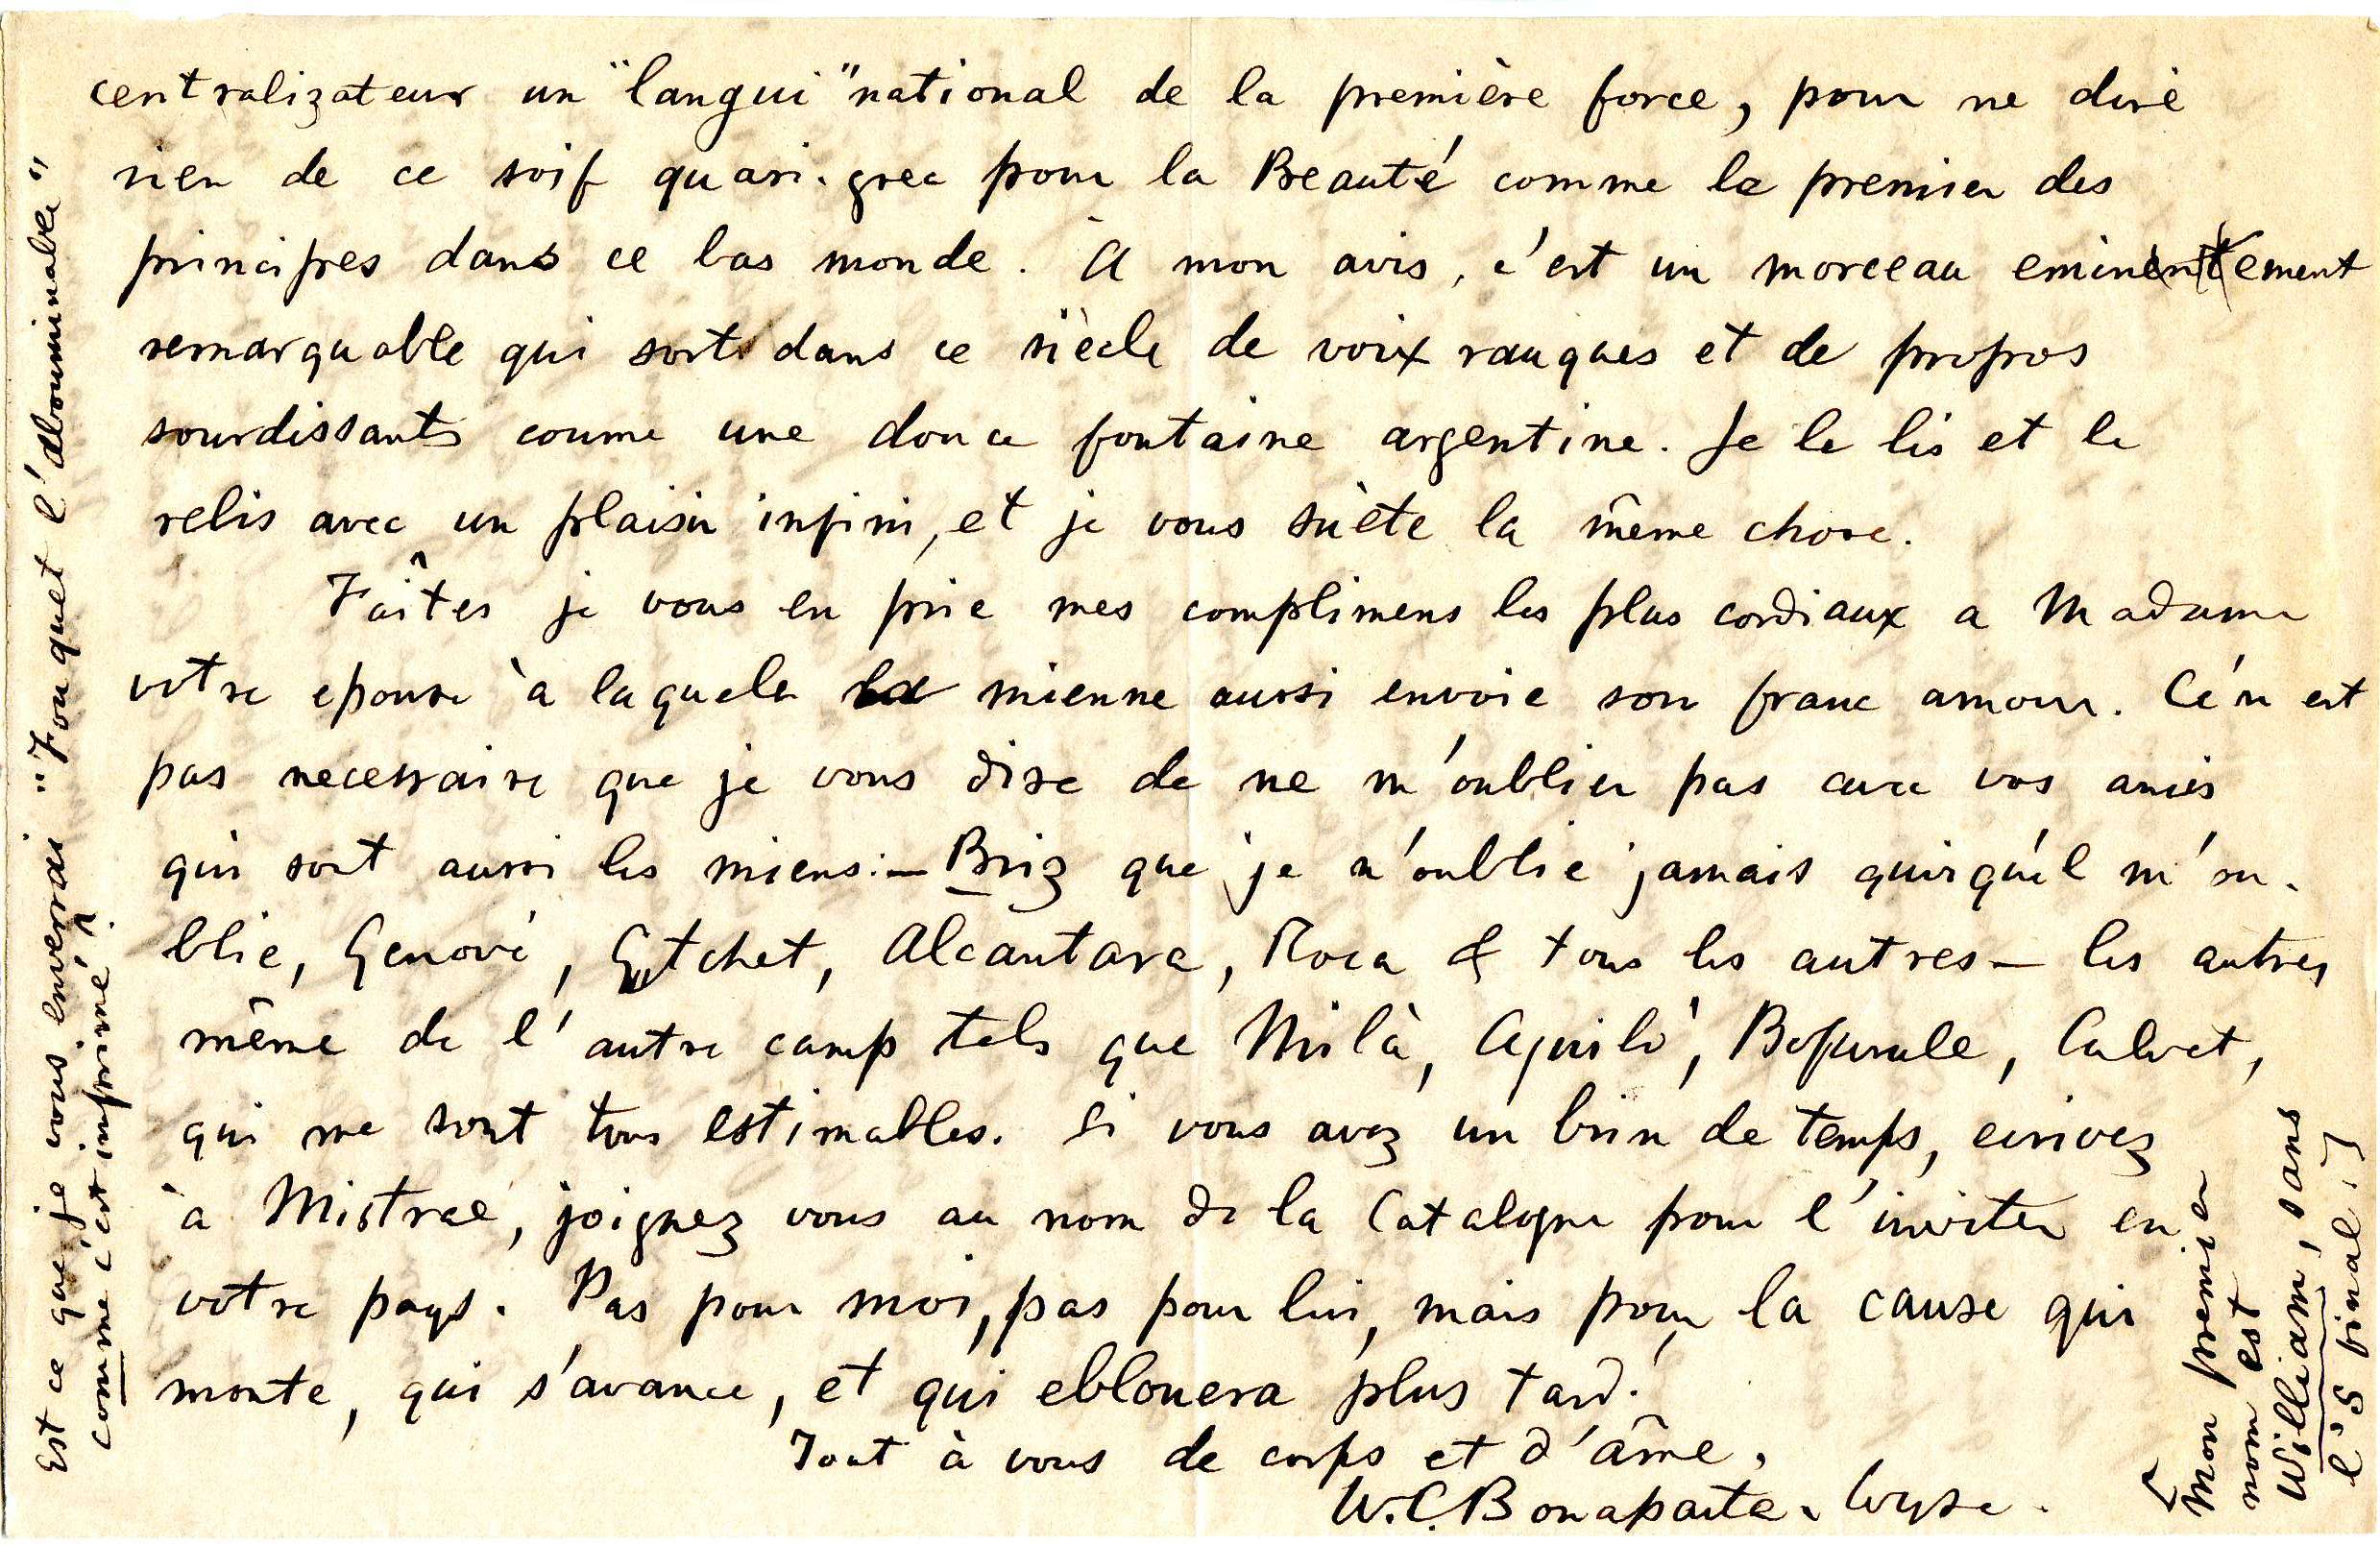 centralizateur un "langui" national de la première force, pour ne dire
rien de ce soif quasi-grec pour la Beauté comme le premier des
principes dans ce bas monde. À mon avis, c'est un morceau eminemment
remarquable qui sort dans ce siècle de voix rauques et de propos
sourdissants coume une douce fontaine argentine. Je le lis et le
relis avec un plaisir infini, et je vous suète la même chose.
Faîtes je vous en prie mes complimens les plus cordiaux a Madame
votre epouse à laquele la mienne aussi envoie son franc amour. Ce n'est
pas necessaire que je vous dise de ne m'oublier pas avec vos amies
qui sont aussi les miens:— Briz que je n'oublie jamais quisqu'il m'ou-
blie, Genové, Gatchet, Alcantara, Roca & tous les autres — les autres
même de l'autre camp tels que Milà, Aguiló, Bofurule, Calvet,
qui me sont tous estimables. Si vous avez un brin de temps, ecrivez
à Mistral, joignez vous au nom de la Catalogne pour l'inviter en
votre pays. Pas pour moi, pas pour lui, mais pour la cause qui
monte, qui s'avance, et qui eblouera plus tard!
Tout à vous de corps et d'âme,
W. C. Bonaparte-Wyse.
[Mon premier
nom est
William, sans
l'S final.]
Est ce que je vous enverrai "Fouquet l'abouminable"
comme c'est imprimé?